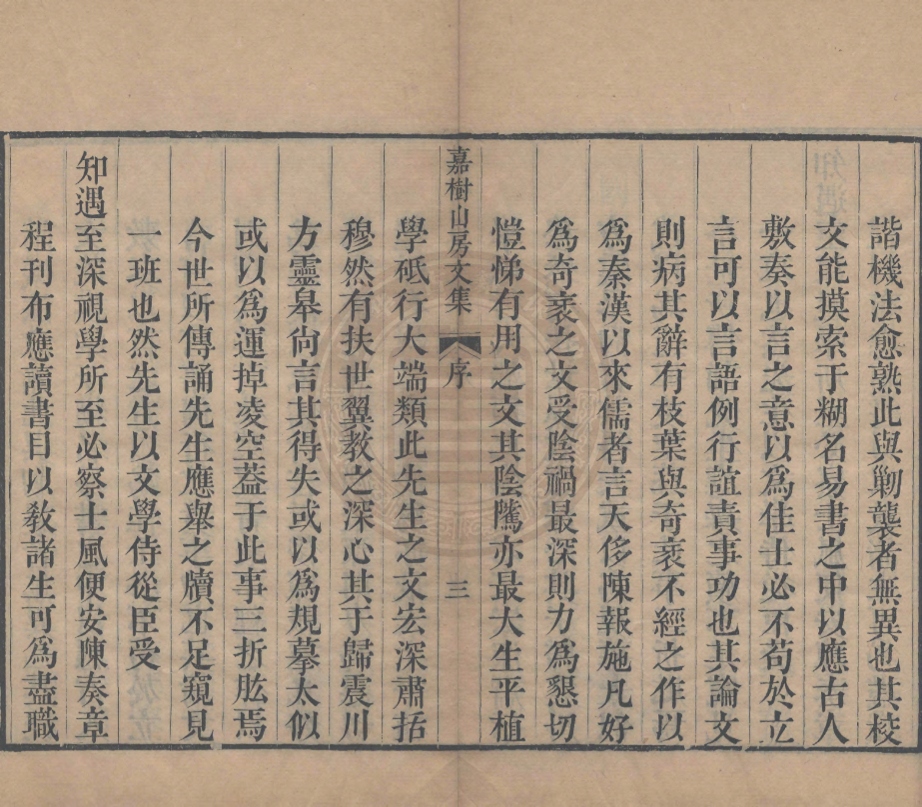 諧機法愈熟此與剿襲者無異也其校
文能摸索于糊名易書之中以應古人
敷奏以言之意以爲佳士必不苟於立
言可以言語例行誼責事功也其論文
則病其辭有枝葉與奇衺不經之作以
爲秦漢以來儒者言天侈陳報施凡好
爲奇衺之文受陰禍最深則力爲懇切
愷悌有用之文其陰騭亦最大生平植
嘉樹山房文集 序 三
學砥行大端類此先生之文宏深肅括
穆然有扶世翼教之深心其于歸震川
方靈皋尙言其得失或以爲規摹太似
或以爲運掉凌空蓋于此事三折肱焉
今世所傳誦先生應舉之牘不足窺見
一班也然先生以文學侍從臣受
知遇至深視學所至必察士風便安陳奏章
程刊布應讀書目以教諸生可爲盡職